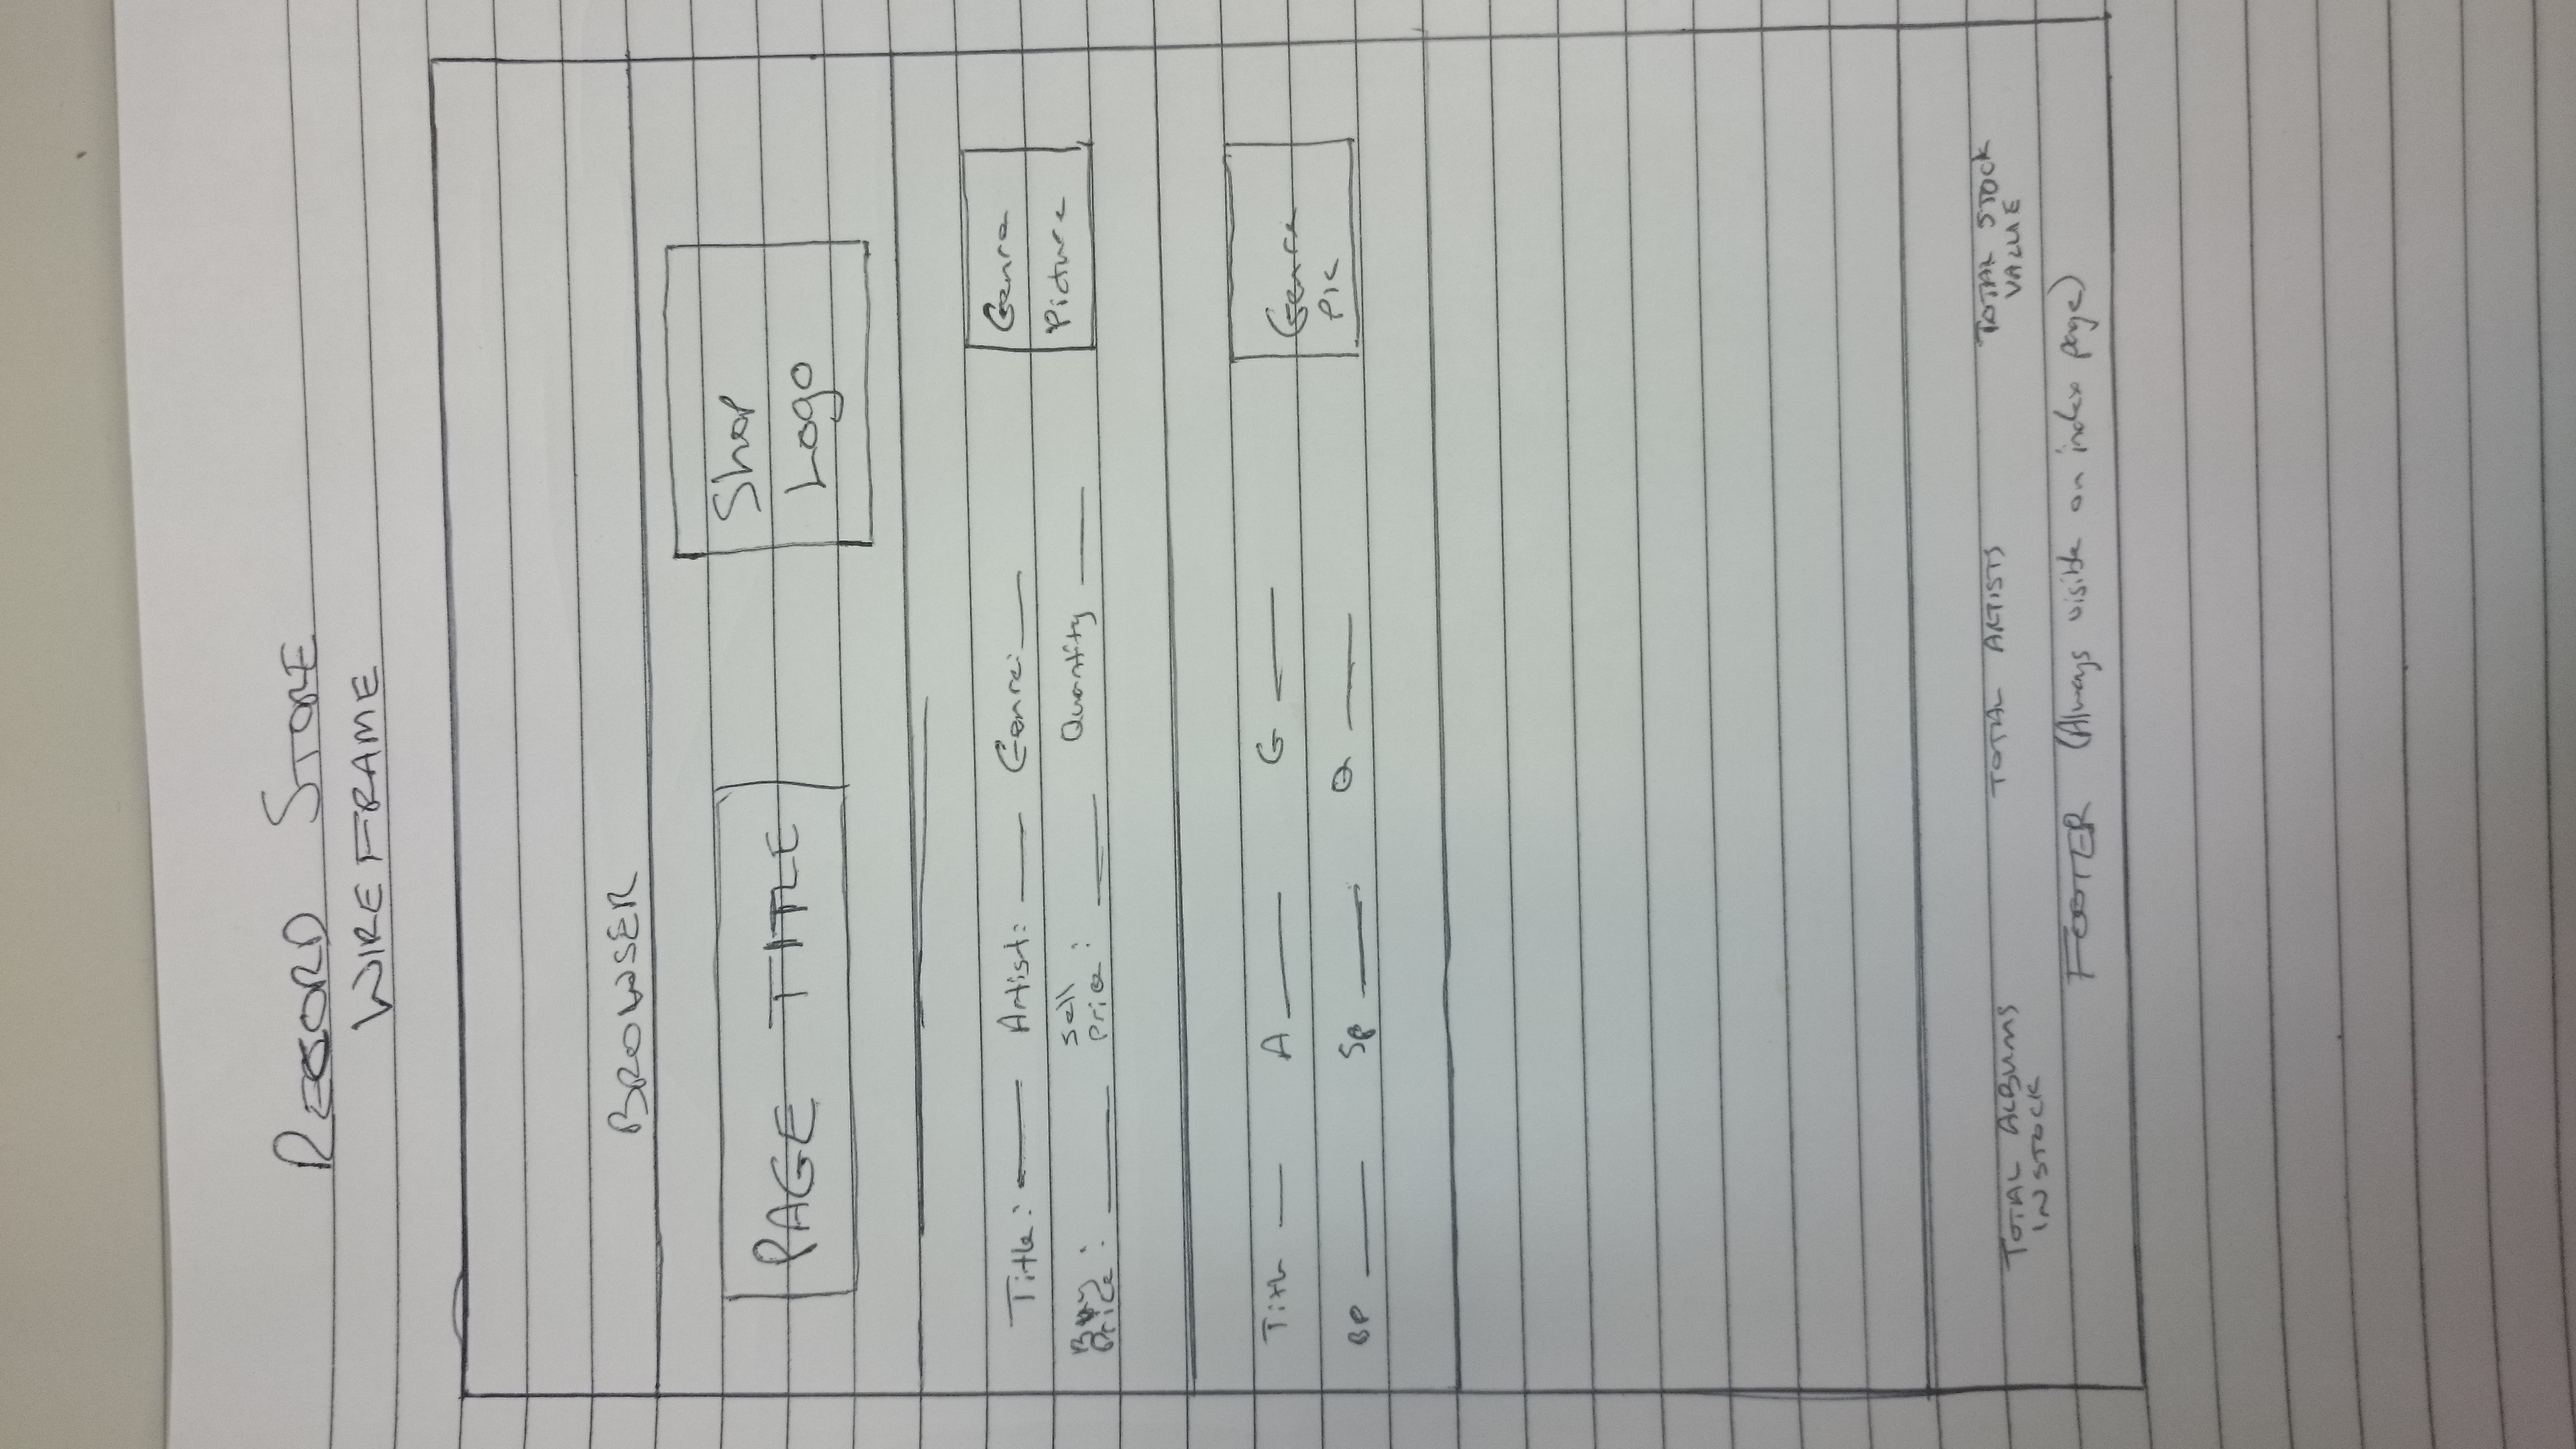 RECORD STORE
WIREFRAME
BROWSER
PAGE TITLE
Shop
Logo
Title: Artist: Genre:
Buy Price: Sell Price: Quantity
Genre
Picture
Title A G
BP SP Q
Genre
Pic
TOTAL ALBUMS
IN STOCK
TOTAL ARTISTS
TOTAL STOCK
VALUE
FOOTER (Always visible on index page)